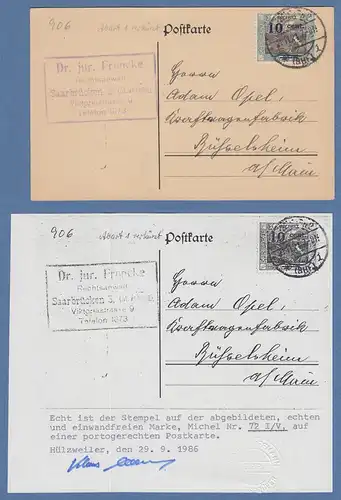 906
Postkarte
10
Dr. jur. Francke
Rechtsanwalt
Saarbrücken 3,
Viktoriastrasse 9
Telefon 1273
Herren
Adam Opel,
Kraftwagenfabrik
Rüsselsheim
a/Main
906
Postkarte
10
Dr. jur. Francke
Rechtsanwalt
Saarbrücken 3,
Viktoriastrasse 9
Telefon 1273
Herren
Adam Opel,
Kraftwagenfabrik
Rüsselsheim
a/Main
Echt ist der Stempel auf der abgebildeten, echten
und einwandfreien Marke, Michel Nr. 72 I/V, auf
einer portogerechten Postkarte.
Hülzweiler, den 29. 9. 1986